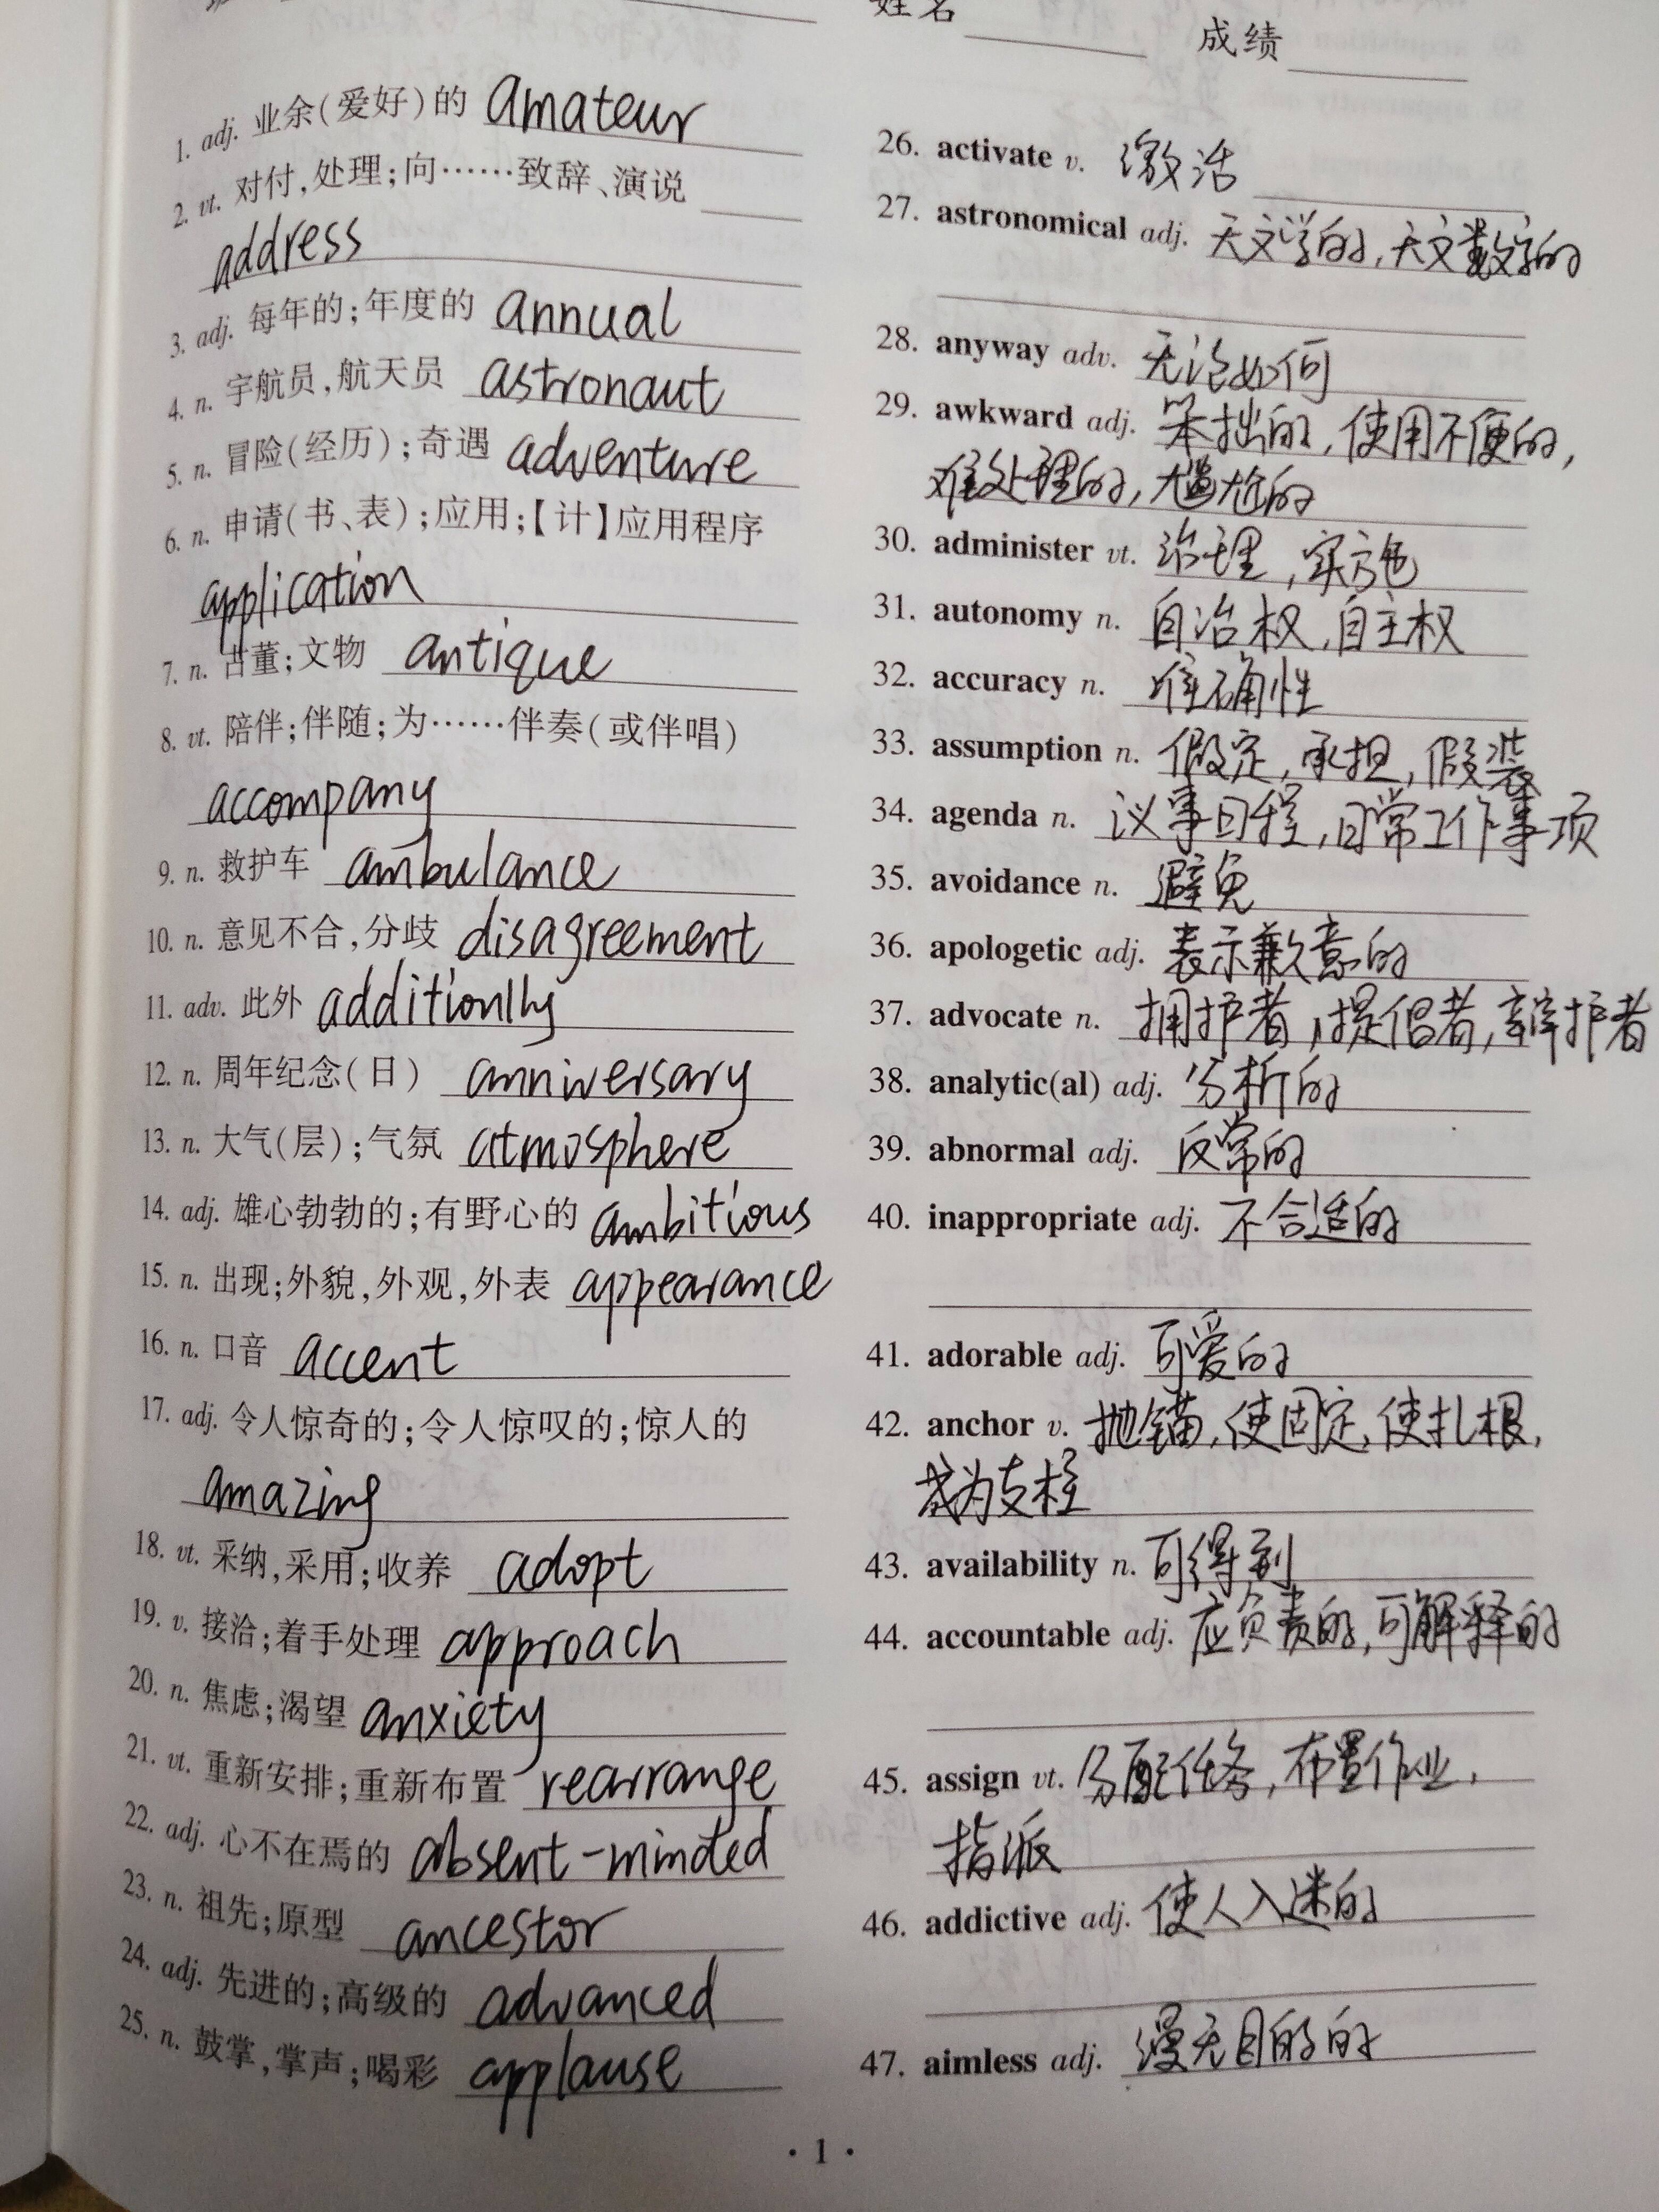 姓名
成绩
1. adj. 业余(爱好)的 amateur
2. vt. 对付,处理;向……致辞、演说
address
3. adj. 每年的;年度的 annual
4. n. 宇航员,航天员 astronaut
5. n. 冒险(经历);奇遇 adventure
6. n. 申请(书、表);应用;【计】应用程序
application
7. n. 古董;文物 antique
8. vt. 陪伴;伴随;为……伴奏(或伴唱)
accompany
9. n. 救护车 ambulance
10. n. 意见不合,分歧 disagreement
11. adv. 此外 additionlly
12. n. 周年纪念(日) anniversary
13. n. 大气(层);气氛 atmosphere
14. adj. 雄心勃勃的;有野心的 ambitious
15. n. 出现;外貌,外观,外表 appearance
16. n. 口音 accent
17. adj. 令人惊奇的;令人惊叹的;惊人的
amazing
18. vt. 采纳,采用;收养 adopt
19. v. 接洽;着手处理 approach
20. n. 焦虑;渴望 anxiety
21. vt. 重新安排;重新布置 rearrange
22. adj. 心不在焉的 absent-minded
23. n. 祖先;原型 ancestor
24. adj. 先进的;高级的 advanced
25. n. 鼓掌,掌声;喝彩 applause
26. activate v. 激活
27. astronomical adj. 天文学的,天文数字的
28. anyway adv. 无论如何
29. awkward adj. 笨拙的,使用不便的,
难处理的,尴尬的
30. administer vt. 治理,实施
31. autonomy n. 自治权,自主权
32. accuracy n. 准确性
33. assumption n. 假定,承担,假装
34. agenda n. 议事日程,日常工作事项
35. avoidance n. 避免
36. apologetic adj. 表示歉意的
37. advocate n. 拥护者,提倡者,辩护者
38. analytic(al) adj. 分析的
39. abnormal adj. 反常的
40. inappropriate adj. 不合适的
41. adorable adj. 可爱的
42. anchor v. 抛锚,使固定,使扎根,
成为支柱
43. availability n. 可得到
44. accountable adj. 应负责的,可解释的
45. assign vt. 分配任务,布置作业,
指派
46. addictive adj. 使人入迷的
47. aimless adj. 漫无目的的
· 1 ·